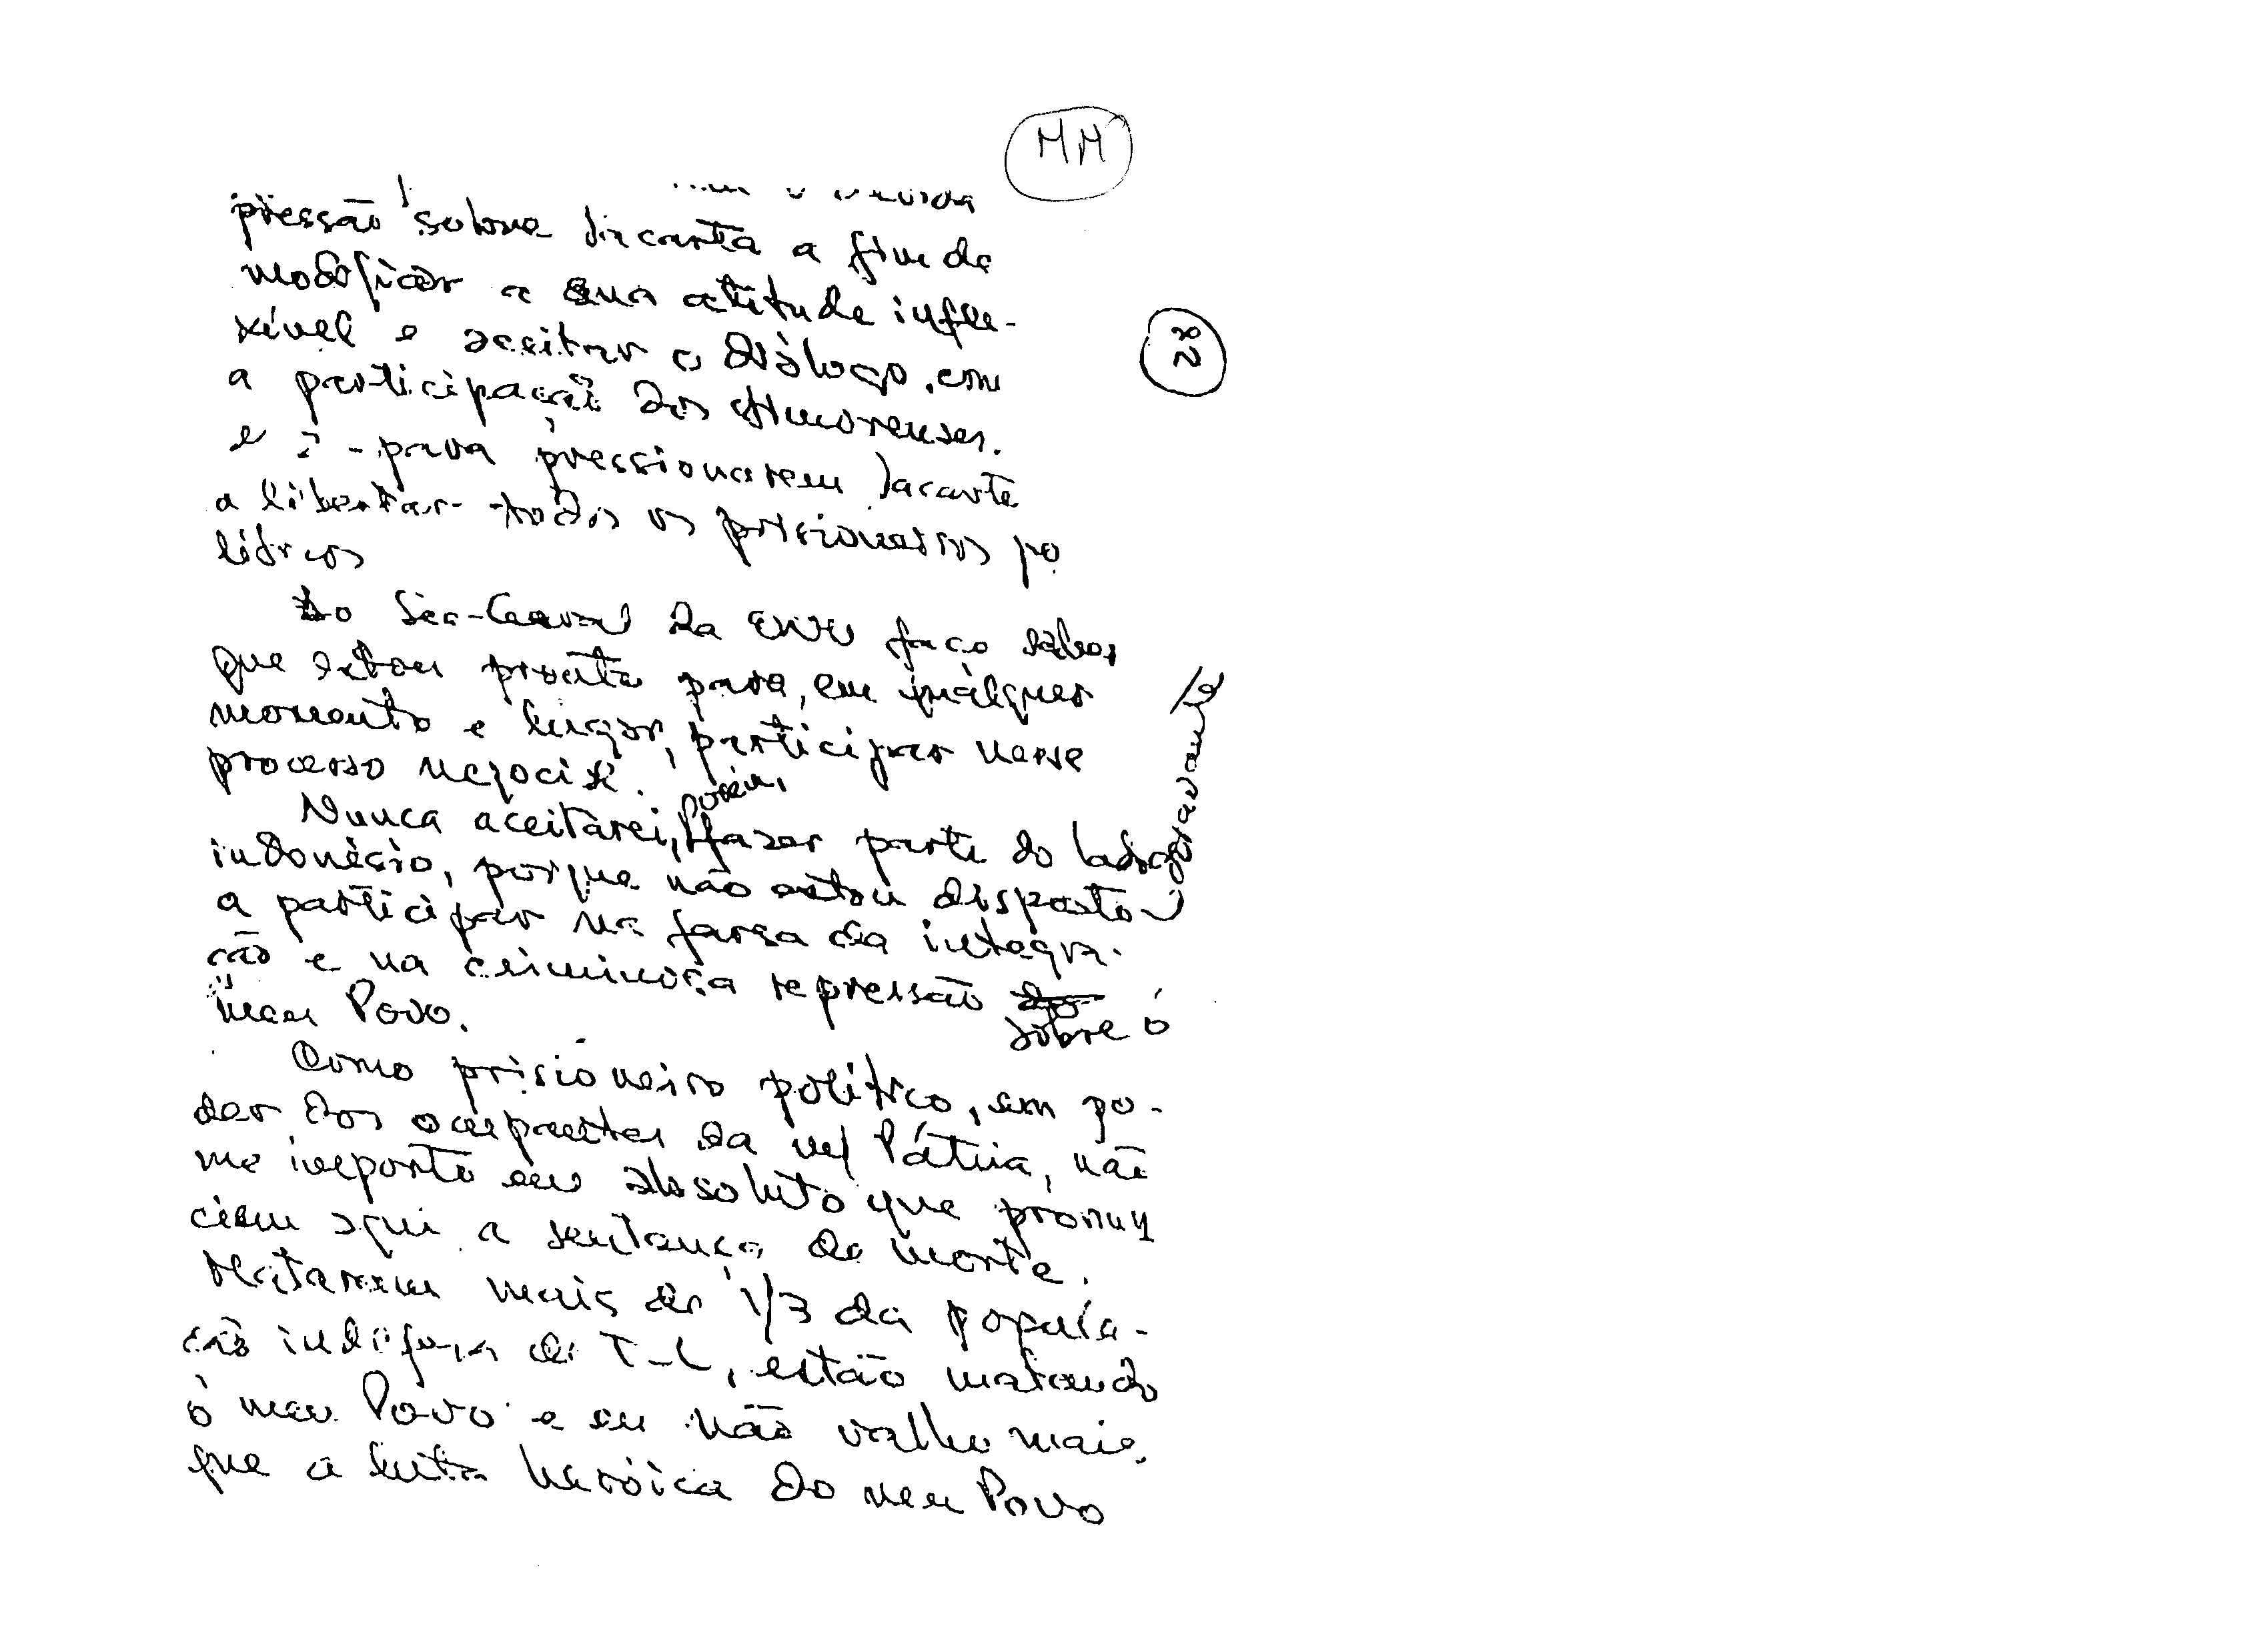 MM
devida
pressão sobre Jacarta a fim de
modificar a sua atitude infle-
xível e aceitar o diálogo, com
a participação dos timorenses.
e 2º - para pressionarem Jacarta
a libertar todos os prisioneiros po
líticos
28
Ao Sec-Geral da ONU faço saber
que estou pronto para, em qualquer
momento e lugar, participar nesse
processo negocial.
Nunca aceitarei, porém, fazer parte do lado
indonésio, porque não estou disposto
a participar na farsa da integra-
ção e na criminosa repressão do
sobre o
meu Povo.
Como prisioneiro político, em po-
der dos ocupantes da m/ Pátria, não
me importo em absoluto que pronun
ciem aqui a sentença de morte.
Mataram mais de 1/3 da popula-
ção indefesa de T-L, estão matando
o meu Povo e eu não valho mais
que a luta heróica do meu Povo